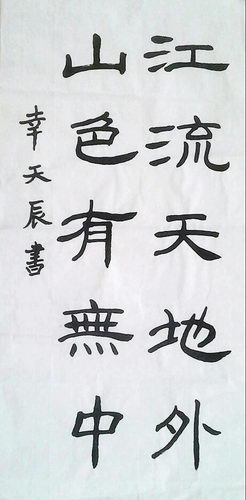 江流天地外
山色有無中
幸天辰書